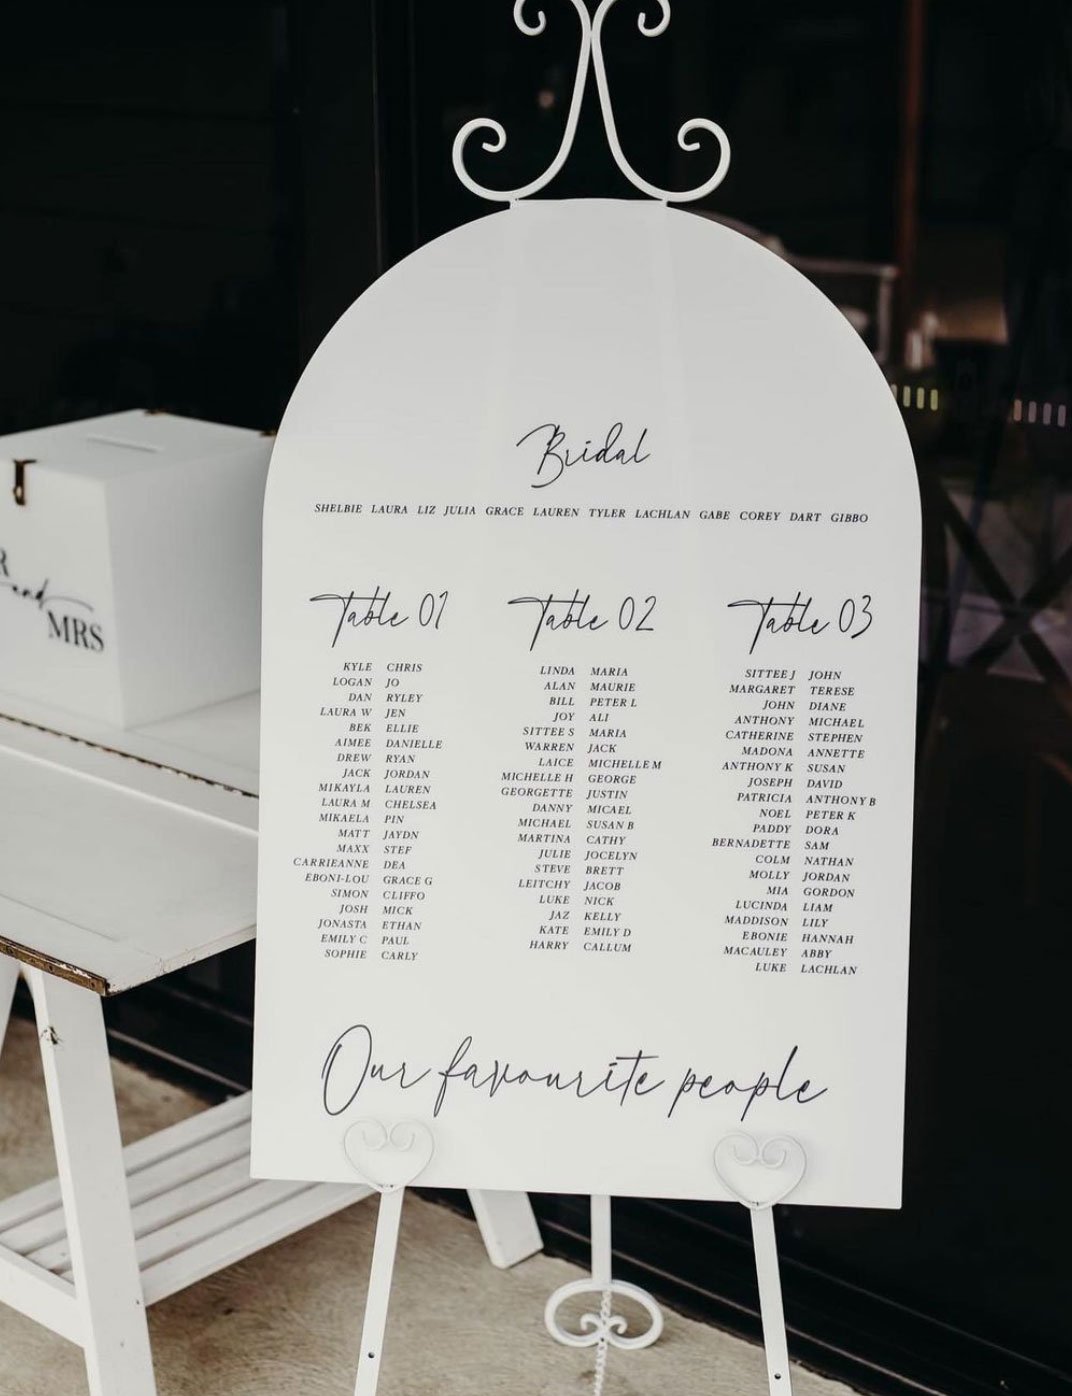 Bridal
SHELBIE LAURA LIZ JULIA GRACE LAUREN TYLER LACHLAN GABE COREY DART GIBBO
Table 01
KYLE CHRIS
LOGAN JO
DAN RYLEY
LAURA W JEN
BEK ELLIE
AIMEE DANIELLE
DREW RYAN
JACK JORDAN
MIKAYLA LAUREN
LAURA M CHELSEA
MIKAELA PIN
MATT JAYDN
MAXX STEF
CARRIEANNE DEA
EBONI-LOU GRACE G
SIMON CLIFFO
JOSH MICK
JONASTA ETHAN
EMILY C PAUL
SOPHIE CARLY
Table 02
LINDA MARIA
ALAN MAURIE
BILL PETER L
JOY ALI
SITTEE S MARIA
WARREN JACK
LAICE MICHELLE M
MICHELLE H GEORGE
GEORGETTE JUSTIN
DANNY MICAEL
MICHAEL SUSAN B
MARTINA CATHY
JULIE JOCELYN
STEVE BRETT
LEITCHY JACOB
LUKE NICK
JAZ KELLY
KATE EMILY D
HARRY CALLUM
Table 03
SITTEE J JOHN
MARGARET TERESE
JOHN DIANE
ANTHONY MICHAEL
CATHERINE STEPHEN
MADONA ANNETTE
ANTHONY K SUSAN
JOSEPH DAVID
PATRICIA ANTHONY B
NOEL PETER K
PADDY DORA
BERNADETTE SAM
COLM NATHAN
MOLLY JORDAN
MIA GORDON
LUCINDA LIAM
MADDISON LILY
EBONIE HANNAH
MACAULEY ABBY
LUKE LACHLAN
Our favourite people
R
and
MRS